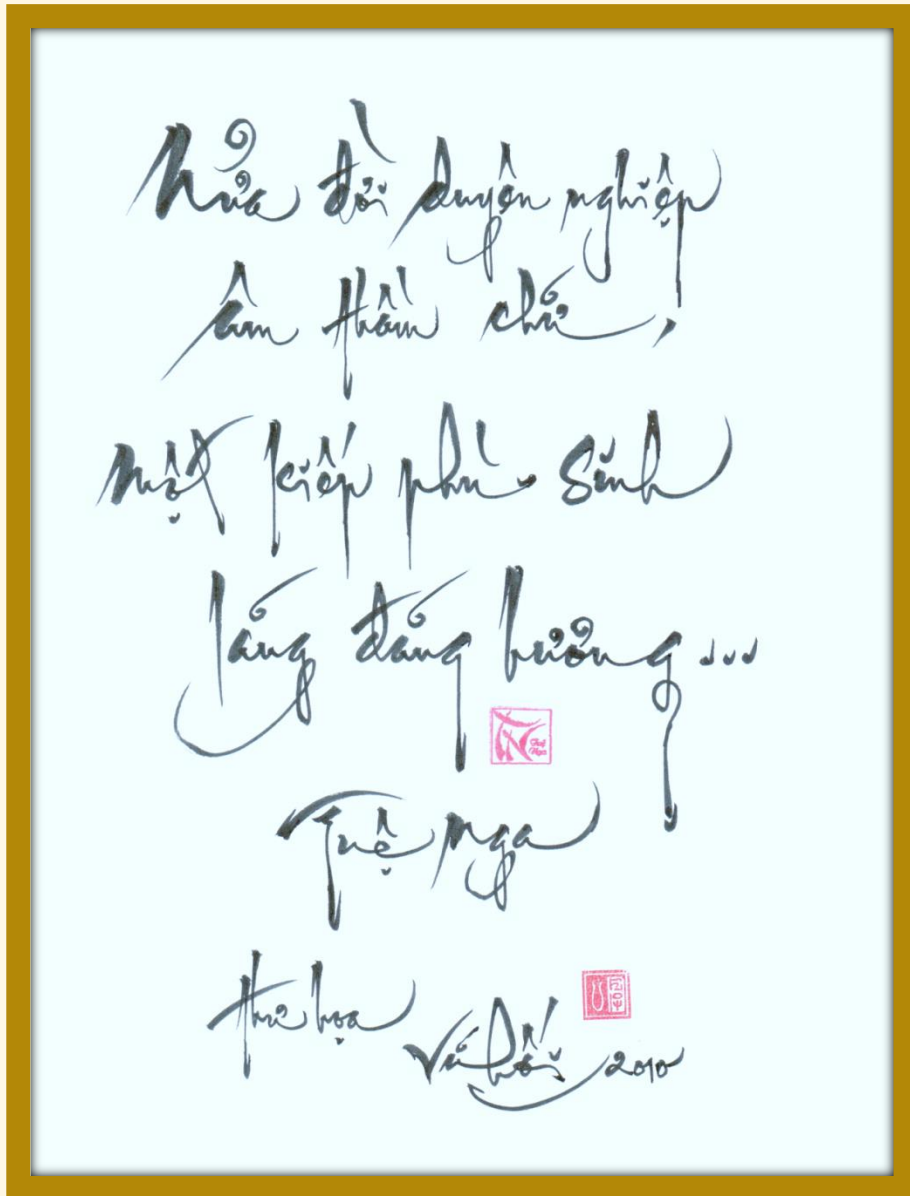 Nửa đời duyên nghiệp
âm thầm
Một kiếp phù sinh
lảng đảng ...
Tuệ Nga
thư họa
Vũ Hối 2010